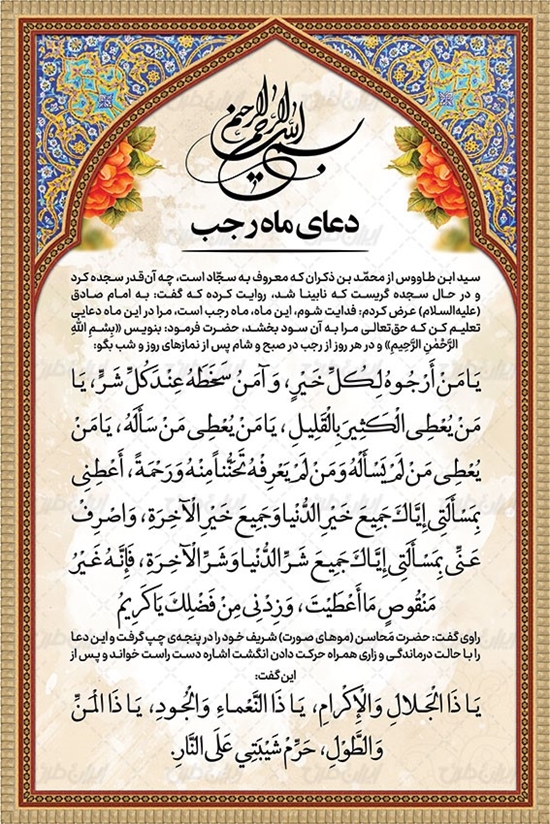 بسم الله الرحمن الرحیم
دعای ماه رجب
سید ابن طاووس از محمّد بن ذکران که معروف به سجّاد است، چه آن‌قدر سجده کرد
و در حال سجده گریست که نابینا شد، روایت کرده که گفت: به امام صادق
(علیه‌السلام) عرض کردم: فدایت شوم، این ماه، ماه رجب است، مرا در این ماه دعایی
تعلیم کن که حق‌تعالی مرا به آن سود بخشد، حضرت فرمود: بنویس «بِسْمِ اللَّهِ
الرَّحْمٰنِ الرَّحِیمِ» و در هر روز از رجب در صبح و شام پس از نمازهای روز و شب بگو:
یَا مَنْ أَرْجُوهُ لِکُلِّ خَیْرٍ، وَ آمَنُ سَخَطَهُ عِنْدَ کُلِّ شَرٍّ، یَا
مَنْ یُعْطِی الْکَثِیرَ بِالْقَلِیلِ، یَا مَنْ یُعْطِی مَنْ سَأَلَهُ، یَا مَنْ
یُعْطِی مَنْ لَمْ یَسْأَلْهُ وَ مَنْ لَمْ یَعْرِفْهُ تَحَنُّناً مِنْهُ وَ رَحْمَةً، أَعْطِنِی
بِمَسْأَلَتِی إِیَّاکَ جَمِیعَ خَیْرِ الدُّنْیا وَ جَمِیعَ خَیْرِ الْآخِرَةِ، وَ اصْرِفْ
عَنِّی بِمَسْأَلَتِی إِیَّاکَ جَمِیعَ شَرِّ الدُّنْیا وَ شَرِّ الْآخِرَةِ، فَإِنَّهُ غَیْرُ
مَنْقُوصٍ مَا أَعْطَیْتَ، وَ زِدْنِی مِنْ فَضْلِکَ یَا کَرِیمُ
راوی گفت: حضرت مَحاسن (موهای صورت) شریف خود را در پنجه‌ی چپ گرفت و این دعا
را با حالت درماندگی و زاری همراه حرکت دادن انگشت اشاره دست راست خواند و پس از
این گفت:
یَا ذَا الْجَلالِ وَ الْإِکْرامِ، یَا ذَا النَّعْماءِ وَ الْجُودِ، یَا ذَا الْمَنِّ
وَ الطَّوْلِ، حَرِّمْ شَیْبَتِی عَلَی النَّارِ.
ایران طرح